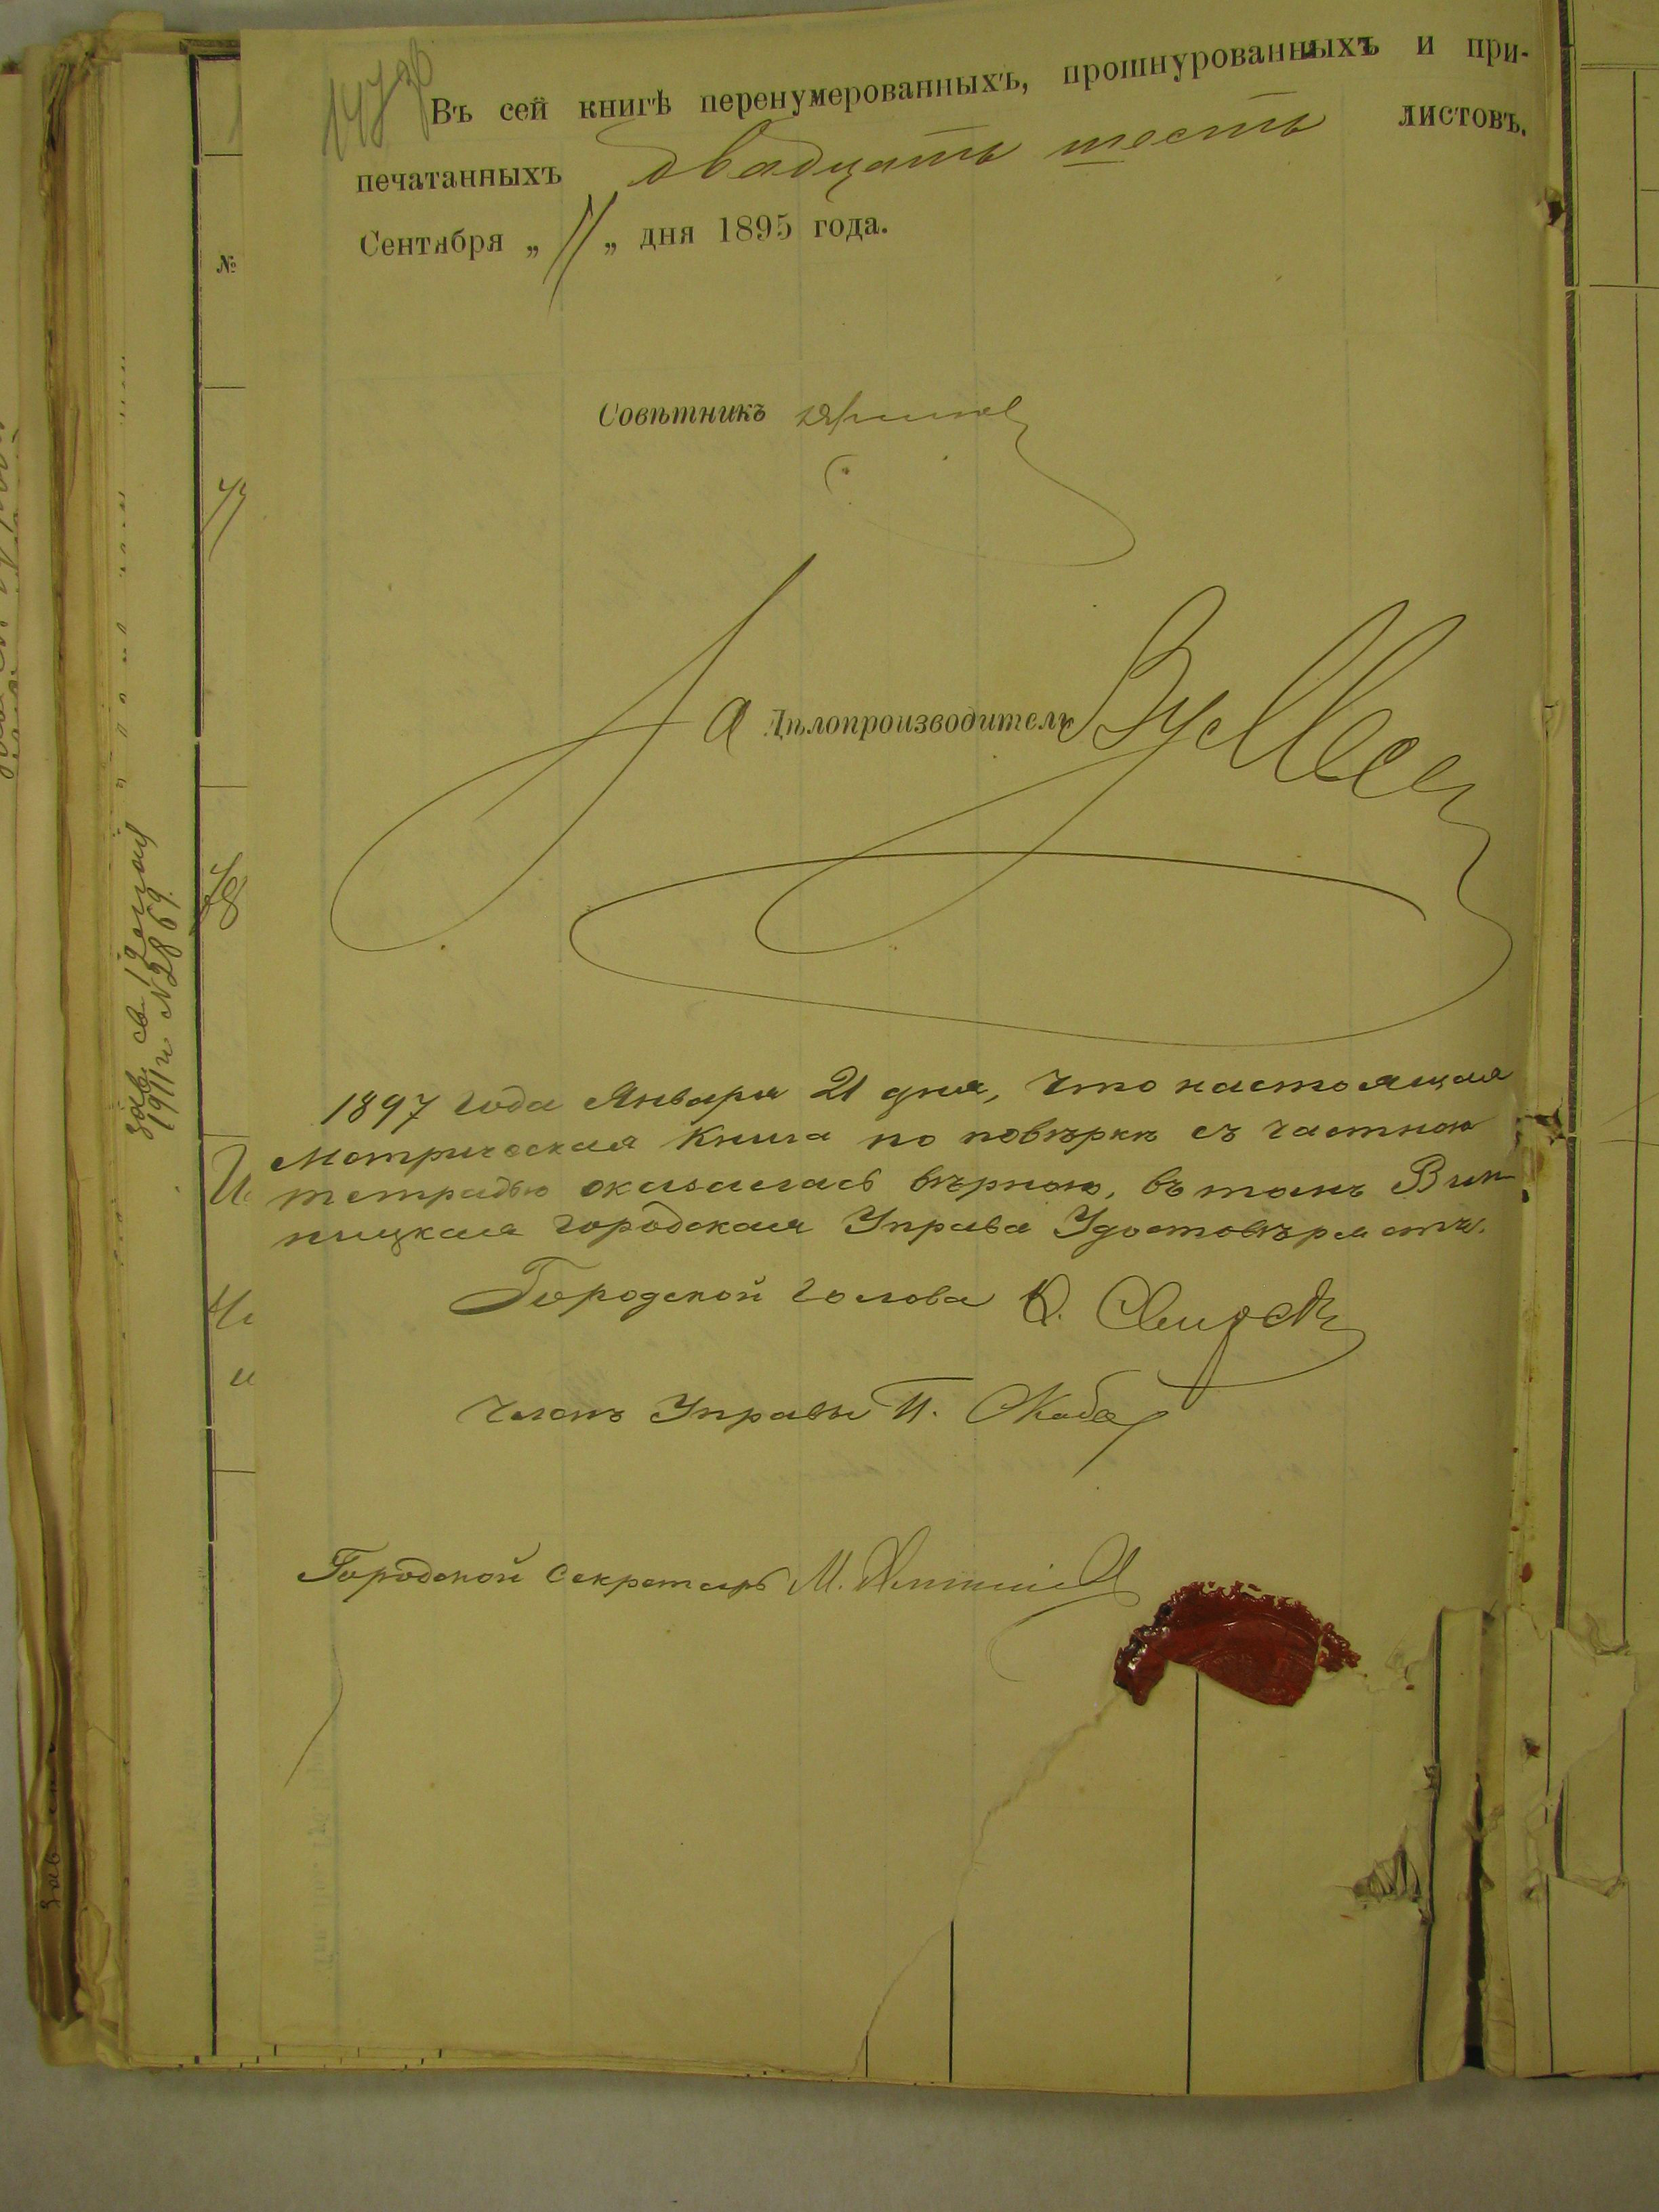 Въ сей книгѣ перенумерованныхъ, прошнурованныхъ и при-
печатанныхъ двадцать шесть листовъ.
Сентября „11„ дня 1895 года.
Совѣтникъ
За Дѣлопроизводитель
1897 года Января 21 дня, Что настоящая
Метрическая Книга по повѣркѣ съ частною
тетрадью оказалась вѣрною, въ томъ Вин-
ницкая Городская Управа Удостовѣряетъ.
Городской Голова
Членъ Управы П.
Городской Секретарь М.
№
1911 г. №2869